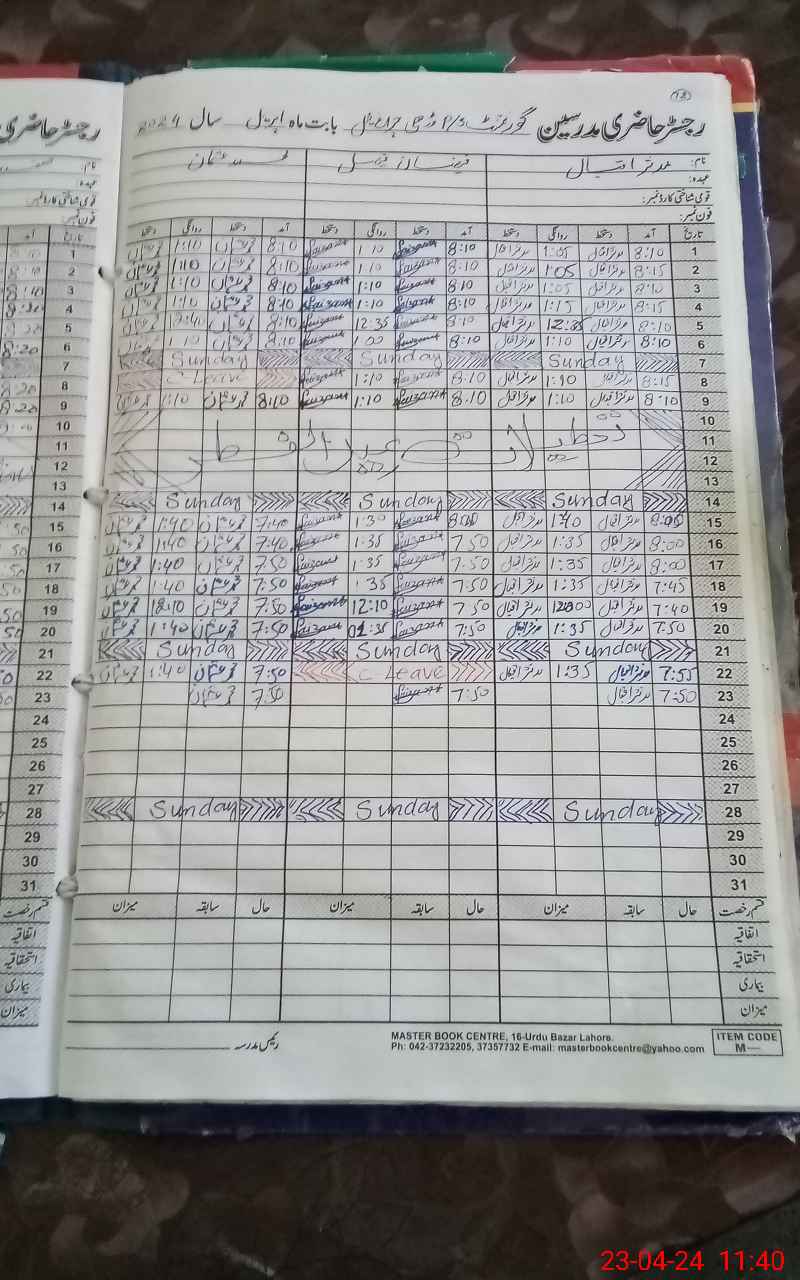 رجسٹر حاضری مدرسین گورنمنٹ بابت ماہ اپریل سال 2024
نام: مدثر اقبال فیضان فیصل محمد عثمان
عہدہ:
قومی شناختی کارڈ نمبر:
فون نمبر:
تاریخ آمد دستخط روانگی دستخط آمد دستخط روانگی دستخط آمد دستخط روانگی دستخط
1 8:10 مدثر اقبال 1:05 مدثر اقبال 8:10 Faizan 1:10 Faizan 8:10 محمد عثمان 1:10 محمد عثمان
2 8:15 مدثر اقبال 1:05 مدثر اقبال 8:10 Faizan 1:10 Faizan 8:10 محمد عثمان 1:10 محمد عثمان
3 8:10 مدثر اقبال 1:05 مدثر اقبال 8:10 Faizan 1:10 Faizan 8:10 محمد عثمان 1:10 محمد عثمان
4 8:15 مدثر اقبال 1:15 مدثر اقبال 8:10 Faizan 1:10 Faizan 8:10 محمد عثمان 1:10 محمد عثمان
5 8:10 مدثر اقبال 12:35 مدثر اقبال 8:10 Faizan 12:35 Faizan 8:10 محمد عثمان 12:40 محمد عثمان
6 8:10 مدثر اقبال 1:10 مدثر اقبال 8:10 Faizan 1:00 Faizan 8:10 محمد عثمان 1:10 محمد عثمان
7 Sunday Sunday Sunday
8 8:15 مدثر اقبال 1:10 مدثر اقبال 8:10 Faizan 1:10 Faizan C Leave
9 8:10 مدثر اقبال 1:10 مدثر اقبال 8:10 Faizan 1:10 Faizan 8:10 محمد عثمان 1:10 محمد عثمان
10
11 تعطیلات عید الفطر
12
13
14 Sunday Sunday Sunday
15 8:05 مدثر اقبال 1:40 مدثر اقبال 8:00 Faizan 1:30 Faizan 7:40 محمد عثمان 1:40 محمد عثمان
16 8:00 مدثر اقبال 1:35 مدثر اقبال 7:50 Faizan 1:35 Faizan 7:40 محمد عثمان 1:40 محمد عثمان
17 8:00 مدثر اقبال 1:35 مدثر اقبال 7:50 Faizan 1:35 Faizan 7:50 محمد عثمان 1:40 محمد عثمان
18 7:45 مدثر اقبال 1:35 مدثر اقبال 7:50 Faizan 1:35 Faizan 7:50 محمد عثمان 1:40 محمد عثمان
19 7:40 مدثر اقبال مدثر اقبال 7:50 Faizan 12:10 Faizan 7:50 محمد عثمان 12:10 محمد عثمان
20 7:50 مدثر اقبال 1:35 مدثر اقبال 7:50 Faizan 01:35 Faizan 7:50 محمد عثمان 1:40 محمد عثمان
21 Sunday Sunday Sunday
22 7:55 مدثر اقبال 1:35 مدثر اقبال C Leave 7:50 محمد عثمان 1:40 محمد عثمان
23 7:50 مدثر اقبال 7:50 Faizan 7:50 محمد عثمان
24
25
26
27
28 Sunday Sunday Sunday
29
30
31
قسم رخصت حال سابقہ میزان حال سابقہ میزان حال سابقہ میزان
اتفاقیہ
استحقاقیہ
بیماری
میزان
رئیس مدرسہ
MASTER BOOK CENTRE, 16-Urdu Bazar Lahore.
Ph: 042-37232205, 37357732 E-mail: masterbookcentre@yahoo.com
ITEM CODE
M—
23-04-24 11:40